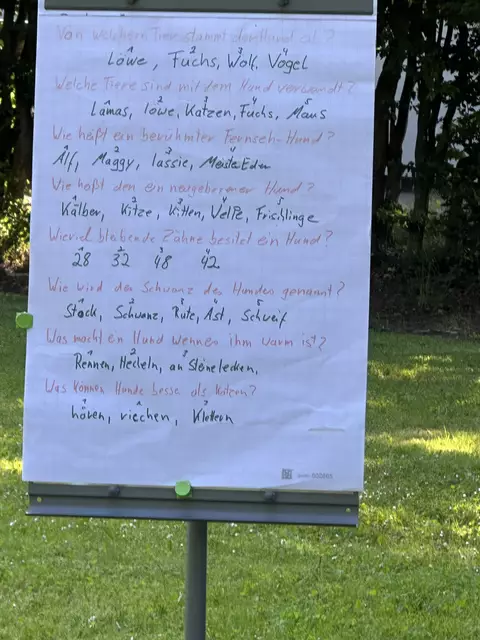 Von welchem Tier stammt der Hund ab?
1 2 3 4
Löwe, Fuchs, Wolf, Vögel
Welche Tiere sind mit dem Hund verwandt?
1 2 3 4 5
Lamas, Löwe, Katzen, Fuchs, Maus
Wie heißt ein berühmter Fernseh-Hund?
1 2 3 4
Alf, Maggy, lassie, Meister Eder
Wie heißt den ein neugeborener Hund?
1 2 3 4 5
Kälber, Kitze, Kitten, Welpe, Frischlinge
Wieviel bleibende Zähne besitzt ein Hund?
1 2 3 4
28 32 48 42
Wie wird der Schwanz des Hundes genannt?
1 2 3 4 5
Stock, Schwanz, Rute, Ast, Schweif
Was macht en Hund wenn es ihm warm ist?
1 2 3
Rennen, Hecheln, an Steine lecken,
Was können Hunde besse als Katzen?
1 2 3
hören, riechen, Klettern